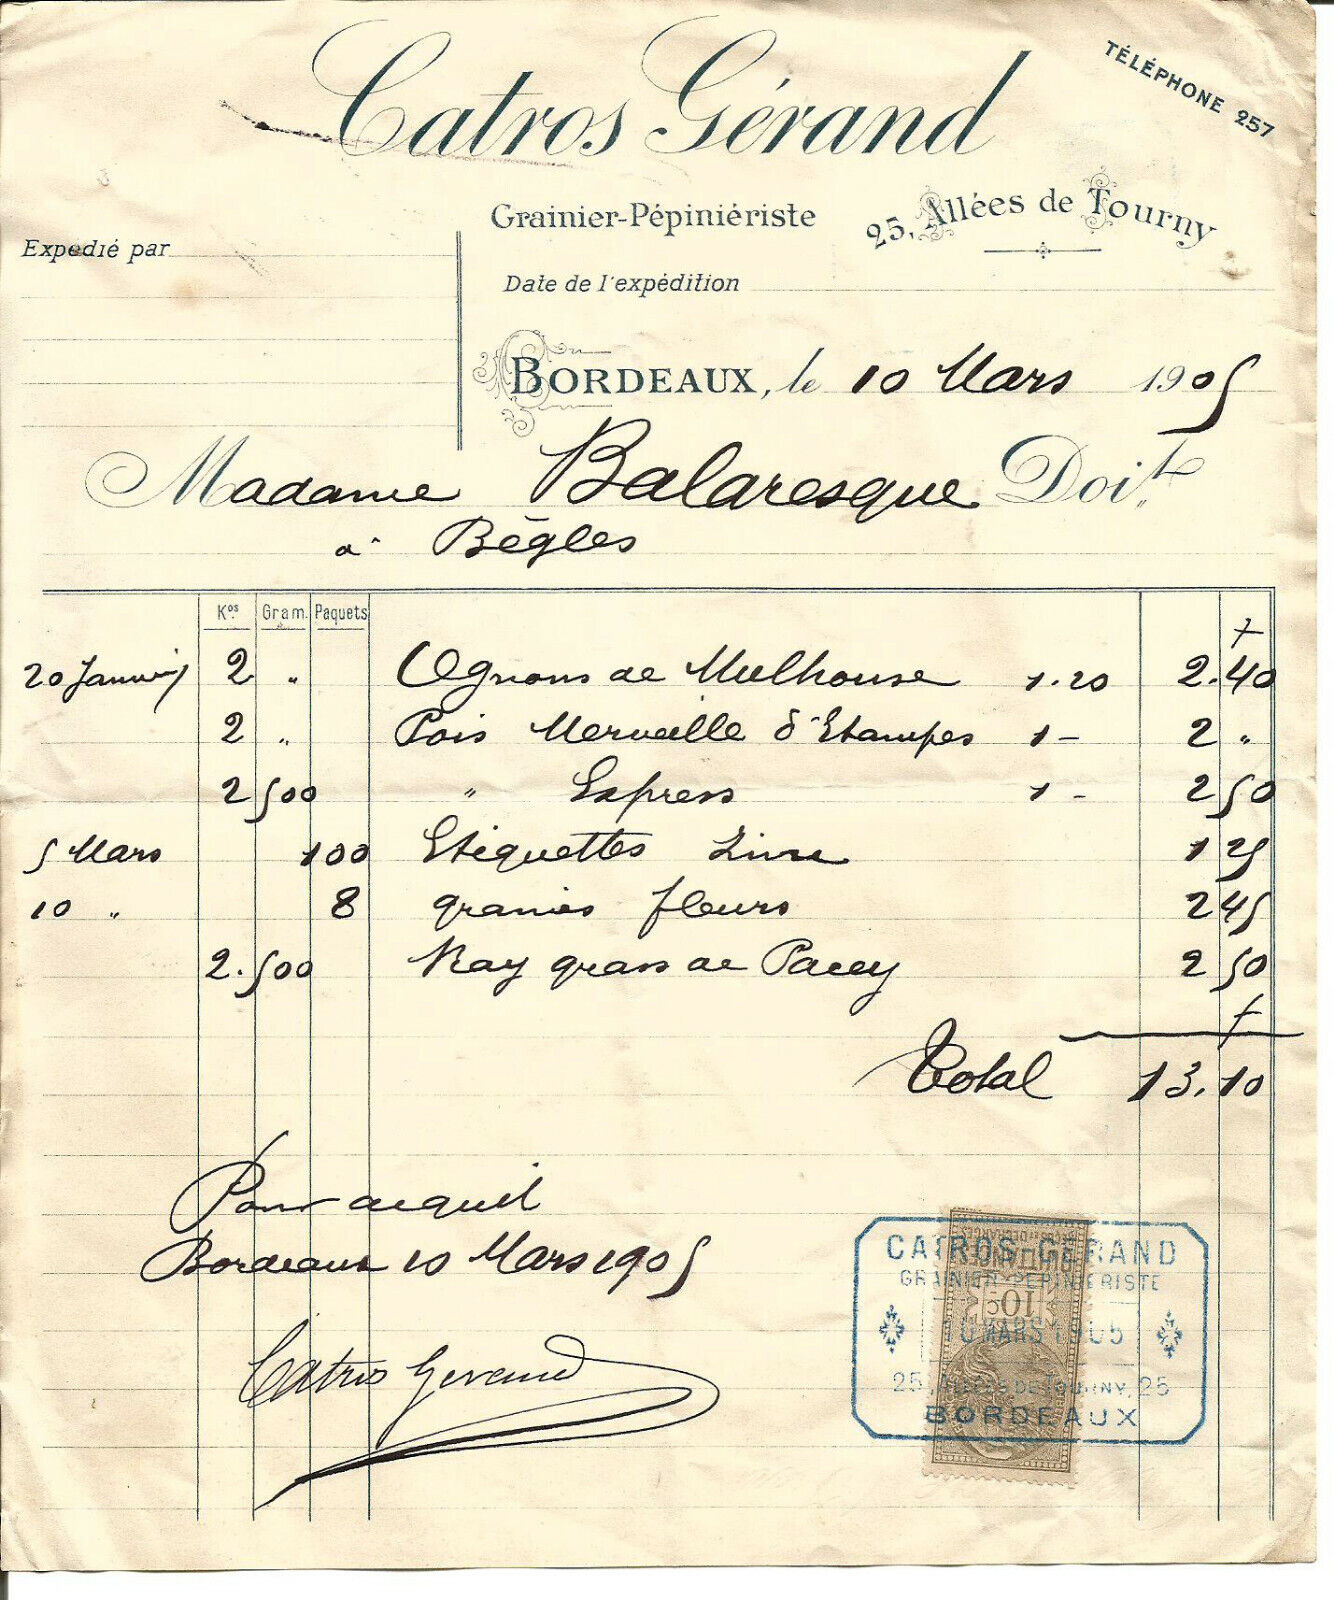 Catros Gérand
TÉLÉPHONE 257
Grainier-Pépiniériste
25, Allées de Tourny
Expedié par
Date de l'expédition
BORDEAUX, le 10 Mars 1905
Madame Balaresque Doit
à Bègles
Kos. Gram. Paquets
20 Janvier 2 " Ognons de Mulhouse 1.20 2.40
2 " Pois Merveille d'Etampes 1 - 2 "
2 500 " Express 1 - 2 50
5 Mars 100 Etiquettes Zinc 1 25
10 " 8 graines fleurs 2 45
2.500 Ray grass de Pacey 2 50
Total 13.10
Pour acquit
Bordeaux 10 Mars 1905
Catros Gerand
CATROS-GERAND
GRAINIER-PEPINIERISTE
10c
MARS 1905
25, ALLÉES DE TOURNY, 25
BORDEAUX